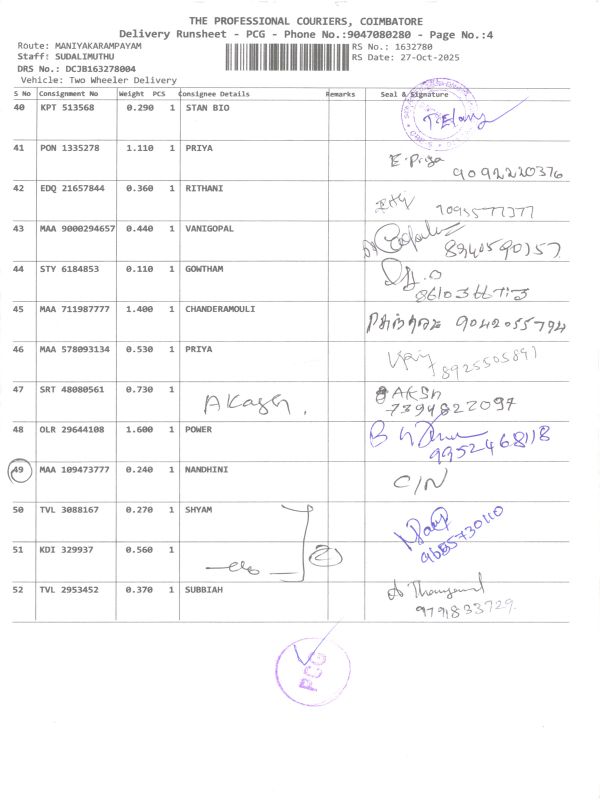 THE PROFESSIONAL COURIERS, COIMBATORE
Delivery Runsheet - PCG - Phone No.:9047080280 - Page No.:4
Route: MANIYAKARAMPAYAM RS No.: 1632780
Staff: SUDALIMUTHU RS Date: 27-Oct-2025
DRS No.: DCJB163278004
Vehicle: Two Wheeler Delivery
S No Consignment No Weight PCS Consignee Details Remarks Seal & Signature
40 KPT 513568 0.290 1 STAN BIO
41 PON 1335278 1.110 1 PRIYA E. Priya
9092220376
42 EDQ 21657844 0.360 1 RITHANI
7095577377
43 MAA 9000294657 0.440 1 VANIGOPAL
8940590157
44 STY 6184853 0.110 1 GOWTHAM
45 MAA 711987777 1.400 1 CHANDERAMOULI 9042055794
46 MAA 578093134 0.530 1 PRIYA
8925505891
47 SRT 48080561 0.730 1 AKASH
Akash. 7394822097
48 OLR 29644108 1.600 1 POWER
9952468118
49 MAA 109473777 0.240 1 NANDHINI C/N
50 TVL 3088167 0.270 1 SHYAM
51 KDI 329937 0.560 1 2
52 TVL 2953452 0.370 1 SUBBIAH
9791833729
PCG